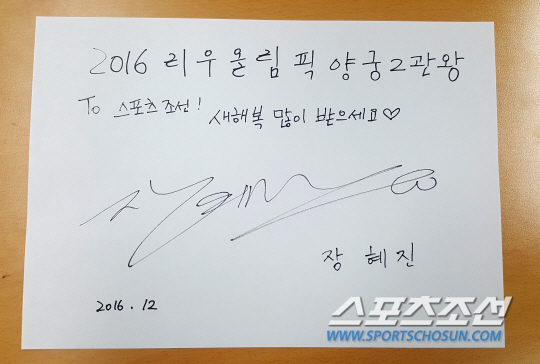 2016 리우올림픽 양궁 2관왕
To 스포츠조선! 새해복 많이 받으세요♡
장혜진
2016.12
스포츠조선
WWW.SPORTSCHOSUN.COM